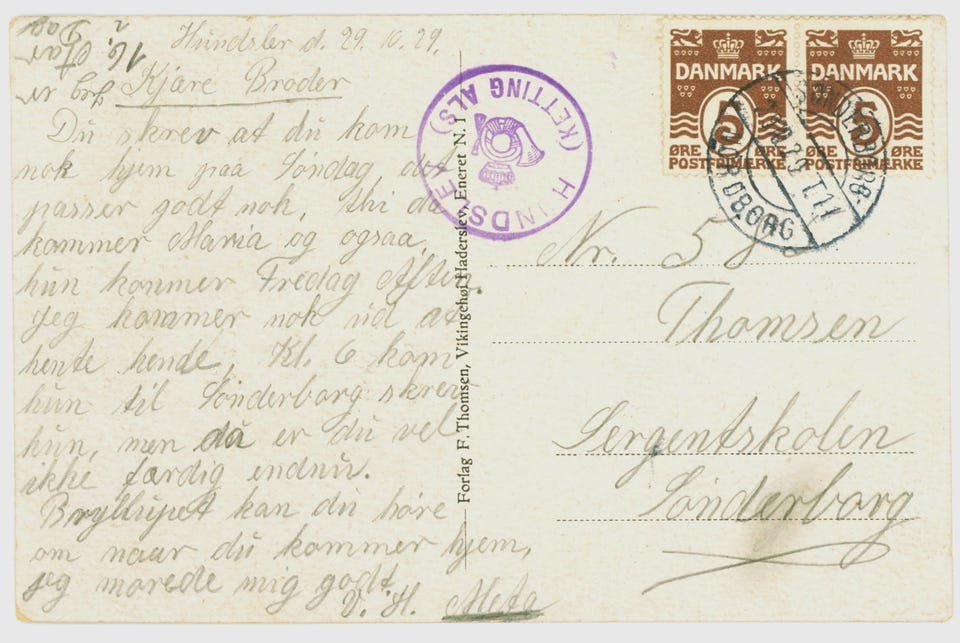 Hundslev d. 29.10.29.
Kjære Broder
Du skrev at du kom
nok hjem paa Søndag, det
passer godt nok, thi da
kommer Maria og ogsaa,
hun kommer Fredag Aften
jeg kommer nok ud at
hente hende, Kl. 6 kom
hun til Sønderborg skrev
hun, men da er du vel
ikke færdig endnu.
Bryllupet kan du høre
om naar du kommer hjem,
jeg morede mig godt.
V. H. Meta
HUNDSLEV
(KETTING ALS)
Forlag F. Thomsen, Vikingehøj Haderslev, Eneret N. 1
DANMARK
5
ØRE ØRE
POSTFRIMÆRKE
DANMARK
5
ØRE ØRE
POSTFRIMÆRKE
SØNDERBORG
Nr. 58
Thomsen
Sergentskolen
Sønderborg